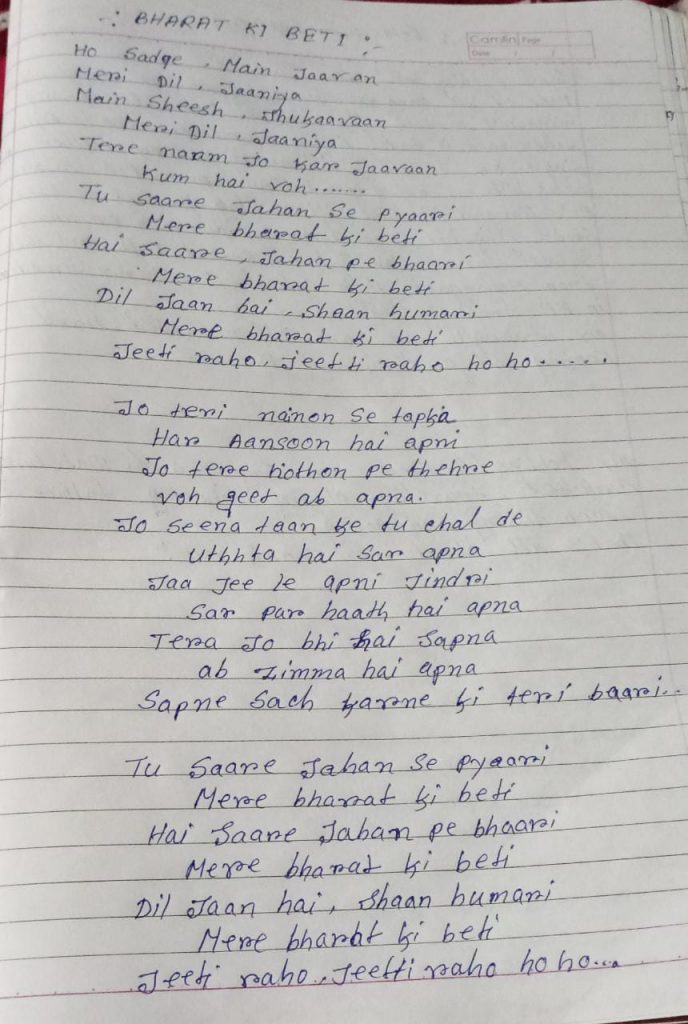 ∴ BHARAT KI BETI :-
Camlin Page
Date / /
Ho Sadqe, Main Jaavan
Meri Dil, Jaaniya
Main Sheesh, Jhukaavaan
Meri Dil, Jaaniya
Tere naam Jo kar Jaavaan
Kum hai voh.......
Tu saare Jahan se pyaari
Mere bharat ki beti
Hai saare, Jahan pe bhaari
Mere bharat ki beti
Dil Jaan hai, Shaan humari
Mere bharat ki beti
Jeeti raho, Jeetti raho ho ho......
Jo teri nainon se tapka
Har Aansoon hai apni
Jo tere hothon pe thehre
voh geet ab apna.
Jo seena taan ke tu chal de
Uthhta hai Sar apna
Jaa Jee le apni Jindri
Sar par haath hai apna
Tera Jo bhi hai Sapna
ab Zimma hai apna
Sapne Sach karne ki teri baari...
Tu Saare Jahan se pyaari
Mere bharat ki beti
Hai Saare Jahan pe bhaari
Mere bharat ki beti
Dil Jaan hai, Shaan humari
Mere bharat ki beti
Jeeti raho, Jeetti raho ho ho....